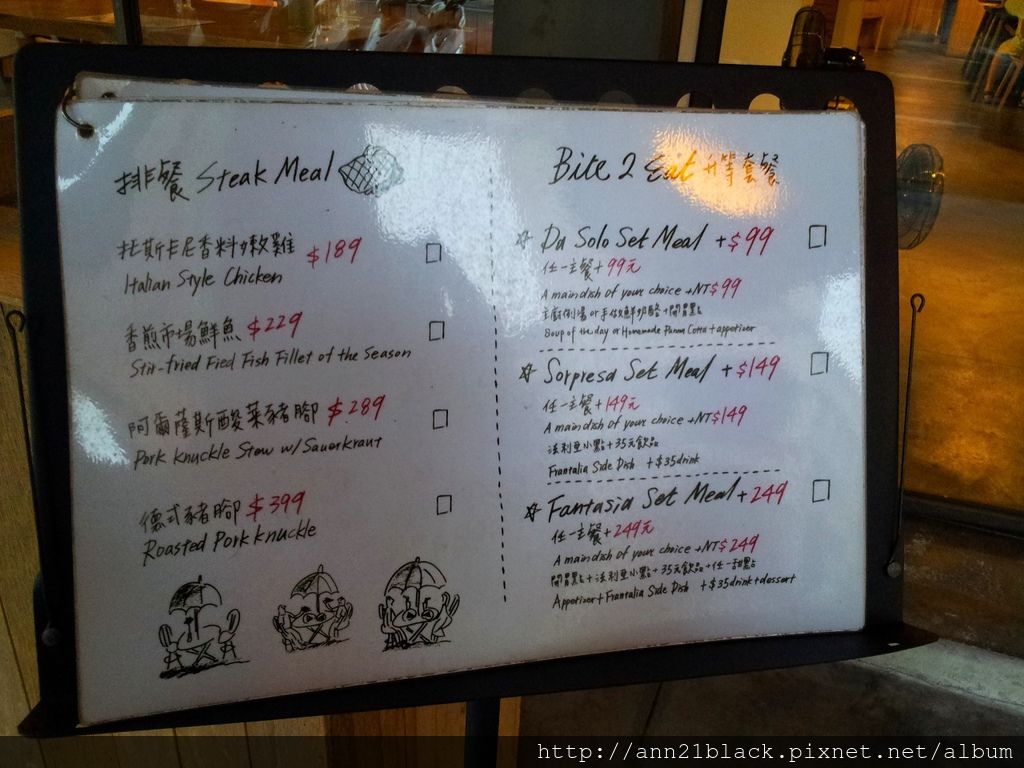 排餐 Steak Meal
托斯卡尼香料嫩雞 $189
Italian Style Chicken
香煎市場鮮魚 $229
Stir-fried Fied Fish Fillet of the Season
阿爾薩斯酸菜豬腳 $289
Pork Knuckle Stew w/ Sauerkraut
德式豬腳 $399
Roasted Pork Knuckle
Bite 2 Eat 升等套餐
Da Solo Set Meal +$99
任一主餐+99元
A main dish of your choice +NT$99
主廚例湯 or 手做鮮奶酪+開胃點
Soup of the day or Homemade Panna Cotta + appetizer
Sorpresa Set Meal +$149
任一主餐+149元
A main dish of your choice +NT$149
法利亞小點+35元飲品
Frantalia Side Dish +$35drink
Fantasia Set Meal +249
任一主餐+249元
A main dish of your choice +NT$249
開胃點+法利亞小點+35元飲品+任一甜點
Appetizer+Frantalia Side Dish +$35drink+dessert
http://ann21black.pixnet.net/album